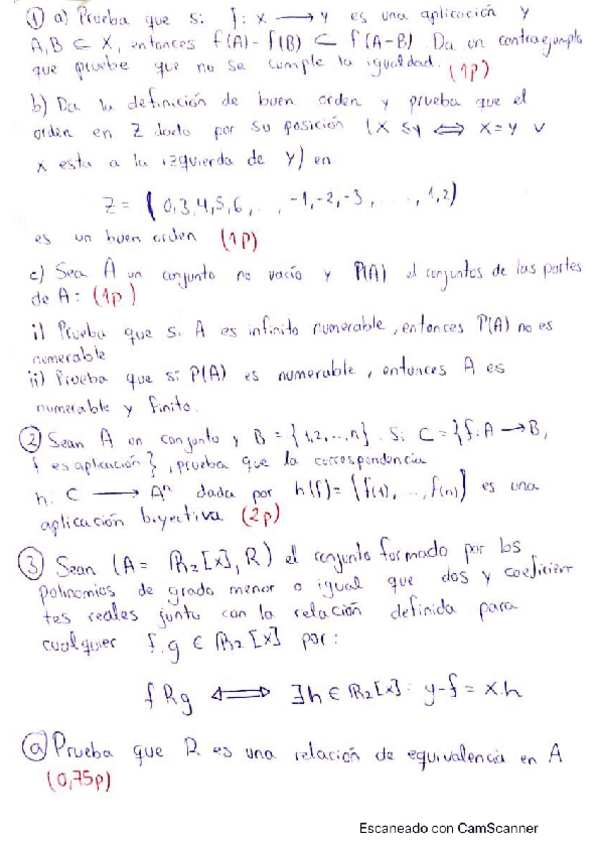 ① a) Prueba que si f: X ⟶ Y es una aplicación y
A, B ⊂ X, entonces f(A) - f(B) ⊂ f(A-B). Da un contraejemplo
que pruebe que no se cumple la igualdad. (1p)
b) Da la definición de buen orden y prueba que el
orden en Z dado por su posición (X ≤ y ⟺ X = y ∨
x esta a la izquierda de y) en
Z = (0,3,4,5,6,..., -1,-2,-3, ....., 1,2)
es un buen orden (1p)
c) Sea A un conjunto no vacío y P(A) el conjuntos de las partes
de A: (1p)
i) Prueba que si A es infinito numerable, entonces P(A) no es
numerable
ii) Prueba que si P(A) es numerable, entonces A es
numerable y finito.
② Sean A un conjunto y B = {1,2,...,n}. Si C = {f: A ⟶ B,
f es aplicación}, prueba que la correspondencia
h: C ⟶ Aⁿ dada por h(f) = (f(1), ..., f(n)) es una
aplicación biyectiva (2p)
③ Sean (A = ℝ₂[x], R) el conjunto formado por los
polinomios de grado menor o igual que dos y coeficien
tes reales junto con la relación definida para
cualquier f, g ∈ ℝ₂[x] por:
f R g ⟺ ∃h ∈ ℝ₂[x]: g-f = x.h
ⓐ Prueba que R es una relación de equivalencia en A
(0,75p)
Escaneado con CamScanner